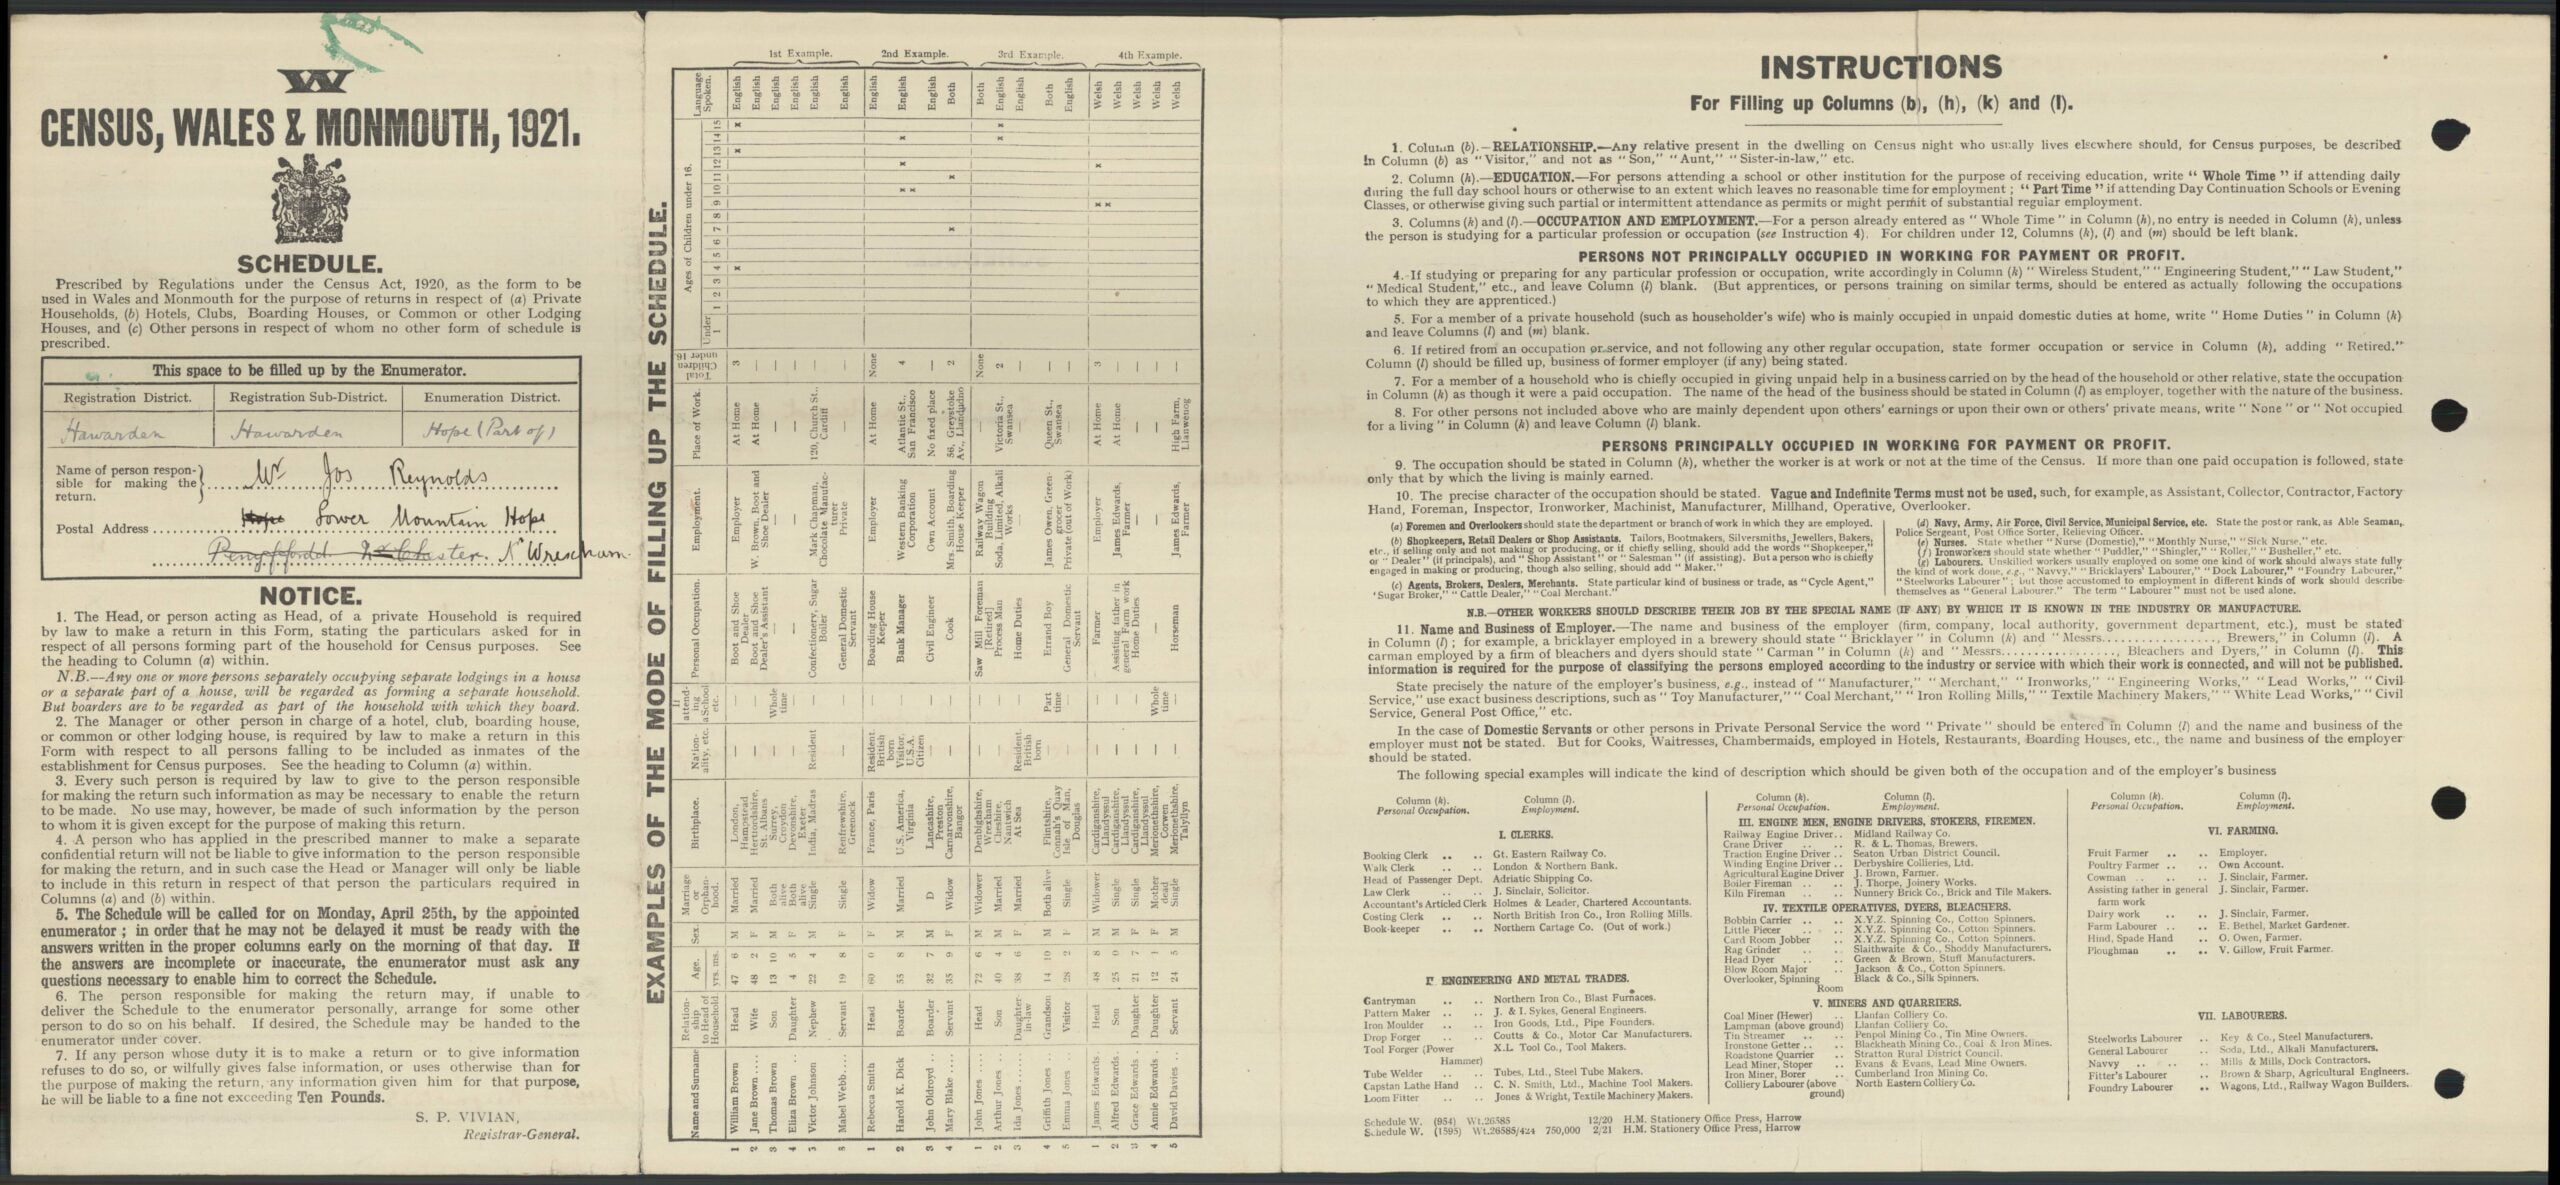 W
CENSUS, WALES & MONMOUTH, 1921.
SCHEDULE.
Prescribed by Regulations under the Census Act, 1920, as the form to be
used in Wales and Monmouth for the purpose of returns in respect of (a) Private
Households, (b) Hotels, Clubs, Boarding Houses, or Common or other Lodging
Houses, and (c) Other persons in respect of whom no other form of schedule is
prescribed.
This space to be filled up by the Enumerator.
Registration District. Registration Sub-District. Enumeration District.
Hawarden Hawarden Hope (Part of)
Name of person respon-
sible for making the
return.
Mr Jos Reynolds
Postal Address Hope Lower Mountain Hope
Penyffordd Nr Chester. Nr Wrexham
NOTICE.
1. The Head, or person acting as Head, of a private Household is required
by law to make a return in this Form, stating the particulars asked for in
respect of all persons forming part of the household for Census purposes. See
the heading to Column (a) within.
N.B.—Any one or more persons separately occupying separate lodgings in a house
or a separate part of a house, will be regarded as forming a separate household.
But boarders are to be regarded as part of the household with which they board.
2. The Manager or other person in charge of a hotel, club, boarding house,
or common or other lodging house, is required by law to make a return in this
Form with respect to all persons falling to be included as inmates of the
establishment for Census purposes. See the heading to Column (a) within.
3. Every such person is required by law to give to the person responsible
for making the return such information as may be necessary to enable the return
to be made. No use may, however, be made of such information by the person
to whom it is given except for the purpose of making this return.
4. A person who has applied in the prescribed manner to make a separate
confidential return will not be liable to give information to the person responsible
for making the return, and in such case the Head or Manager will only be liable
to include in this return in respect of that person the particulars required in
Columns (a) and (b) within.
5. The Schedule will be called for on Monday, April 25th, by the appointed
enumerator; in order that he may not be delayed it must be ready with the
answers written in the proper columns early on the morning of that day. If
the answers are incomplete or inaccurate, the enumerator must ask any
questions necessary to enable him to correct the Schedule.
6. The person responsible for making the return may, if unable to
deliver the Schedule to the enumerator personally, arrange for some other
person to do so on his behalf. If desired, the Schedule may be handed to the
enumerator under cover.
7. If any person whose duty it is to make a return or to give information
refuses to do so, or wilfully gives false information, or uses otherwise than for
the purpose of making the return, any information given him for that purpose,
he will be liable to a fine not exceeding Ten Pounds.
S. P. VIVIAN,
Registrar-General.
EXAMPLES OF THE MODE OF FILLING UP THE SCHEDULE.
Name and Surname Relation-ship to Head of Household. Age. yrs. ms. Sex. Marriage or Orphan-hood. Birthplace. Nation-ality, etc. If attend-ing a School etc. Personal Occupation. Employment. Place of Work. Total Children under 16. Ages of Children under 16. Under 1 1 2 3 4 5 6 7 8 9 10 11 12 13 14 15 Language Spoken.
1st Example.
1 William Brown Head 47 6 M Married London, Hampstead — — Boot and Shoe Dealer Employer At Home 3 x x x English
2 Jane Brown Wife 48 2 F Married Hertfordshire, St. Albans — — Boot and Shoe Dealer's Assistant W. Brown, Boot and Shoe Dealer At Home — English
3 Thomas Brown Son 13 10 M Both alive Surrey, Croydon — Whole time — — — — English
4 Eliza Brown Daughter 4 5 F Both alive Devonshire, Exeter — — — — — — English
5 Victor Johnson Nephew 22 4 M Single India, Madras Resident — Confectionery, Sugar Boiler Mark Chapman, Chocolate Manufac-turer 120, Church St., Cardiff — English
8 Mabel Webb Servant 19 8 F Single Renfrewshire, Greenock — — General Domestic Servant Private — — English
2nd Example.
1 Rebecca Smith Head 60 0 F Widow France, Paris Resident British born — Boarding House Keeper Employer At Home None English
2 Harold K. Dick Boarder 55 8 M Married U.S. America, Virginia Visitor, U.S.A. Citizen — Bank Manager Western Banking Corporation Atlantic St., San Francisco 4 x x x x English
3 John Oldroyd Boarder 32 7 M D Lancashire, Preston — — Civil Engineer Own Account No fixed place — English
4 Mary Blake Servant 35 9 F Widow Carnarvonshire, Bangor — — Cook Mrs. Smith, Boarding House Keeper 56, Greystoke Av., Llandudno 2 x x Both
3rd Example.
1 John Jones Head 72 6 M Widower Denbighshire, Wrexham — — Saw Mill Foreman [Retired] Railway Wagon Building — None Both
2 Arthur Jones Son 40 4 M Married Cheshire, Nantwich — — Process Man Soda, Limited, Alkali Works Victoria St., Swansea 2 x x English
3 Ida Jones Daughter-in-law 38 6 F Married At Sea Resident. British born — Home Duties — — — English
4 Griffith Jones Grandson 14 10 M Both alive Flintshire, Connah's Quay — Part time Errand Boy James Owen, Green-grocer Queen St., Swansea — Both
5 Emma Jones Visitor 28 2 F Single Isle of Man, Douglas — — General Domestic Servant Private (out of Work) — — English
4th Example.
1 James Edwards Head 48 8 M Widower Cardiganshire, Llandyssul — — Farmer Employer At Home 3 x x x Welsh
2 Alfred Edwards Son 25 0 M Single Cardiganshire, Llandyssul — — Assisting father in general Farm work James Edwards, Farmer At Home — Welsh
3 Grace Edwards Daughter 21 7 F Single Cardiganshire, Llandyssul — — Home Duties — — — Welsh
4 Annie Edwards Daughter 12 1 F Mother dead Merionethshire, Corwen — Whole time — — — — Welsh
5 David Davies Servant 24 5 M Single Merionethshire, Talyllyn — — Horseman James Edwards, Farmer High Farm, Llanwenog — Welsh
INSTRUCTIONS
For Filling up Columns (b), (h), (k) and (l).
1. Column (b).—RELATIONSHIP.—Any relative present in the dwelling on Census night who usually lives elsewhere should, for Census purposes, be described
in Column (b) as "Visitor," and not as "Son," "Aunt," "Sister-in-law," etc.
2. Column (h).—EDUCATION.—For persons attending a school or other institution for the purpose of receiving education, write "Whole Time" if attending daily
during the full day school hours or otherwise to an extent which leaves no reasonable time for employment; "Part Time" if attending Day Continuation Schools or Evening
Classes, or otherwise giving such partial or intermittent attendance as permits or might permit of substantial regular employment.
3. Columns (k) and (l).—OCCUPATION AND EMPLOYMENT.—For a person already entered as "Whole Time" in Column (h), no entry is needed in Column (k), unless
the person is studying for a particular profession or occupation (see Instruction 4). For children under 12, Columns (k), (l) and (m) should be left blank.
PERSONS NOT PRINCIPALLY OCCUPIED IN WORKING FOR PAYMENT OR PROFIT.
4. If studying or preparing for any particular profession or occupation, write accordingly in Column (k) "Wireless Student," "Engineering Student," "Law Student,"
"Medical Student," etc., and leave Column (l) blank. (But apprentices, or persons training on similar terms, should be entered as actually following the occupations
to which they are apprenticed.)
5. For a member of a private household (such as householder's wife) who is mainly occupied in unpaid domestic duties at home, write "Home Duties" in Column (k)
and leave Columns (l) and (m) blank.
6. If retired from an occupation or service, and not following any other regular occupation, state former occupation or service in Column (k), adding "Retired."
Column (l) should be filled up, business of former employer (if any) being stated.
7. For a member of a household who is chiefly occupied in giving unpaid help in a business carried on by the head of the household or other relative, state the occupation
in Column (k) as though it were a paid occupation. The name of the head of the business should be stated in Column (l) as employer, together with the nature of the business.
8. For other persons not included above who are mainly dependent upon others' earnings or upon their own or others' private means, write "None" or "Not occupied
for a living" in Column (k) and leave Column (l) blank.
PERSONS PRINCIPALLY OCCUPIED IN WORKING FOR PAYMENT OR PROFIT.
9. The occupation should be stated in Column (k), whether the worker is at work or not at the time of the Census. If more than one paid occupation is followed, state
only that by which the living is mainly earned.
10. The precise character of the occupation should be stated. Vague and Indefinite Terms must not be used, such, for example, as Assistant, Collector, Contractor, Factory
Hand, Foreman, Inspector, Ironworker, Machinist, Manufacturer, Millhand, Operative, Overlooker.
(a) Foremen and Overlookers should state the department or branch of work in which they are employed.
(b) Shopkeepers, Retail Dealers or Shop Assistants. Tailors, Bootmakers, Silversmiths, Jewellers, Bakers,
etc., if selling only and not making or producing, or if chiefly selling, should add the words "Shopkeeper,"
or "Dealer" (if principals), and "Shop Assistant" or "Salesman" (if assisting). But a person who is chiefly
engaged in making or producing, though also selling, should add "Maker."
(c) Agents, Brokers, Dealers, Merchants. State particular kind of business or trade, as "Cycle Agent,"
'Sugar Broker," "Cattle Dealer," "Coal Merchant."
(d) Navy, Army, Air Force, Civil Service, Municipal Service, etc. State the post or rank, as Able Seaman,
Police Sergeant, Post Office Sorter, Relieving Officer.
(e) Nurses. State whether "Nurse (Domestic)," "Monthly Nurse," "Sick Nurse," etc.
(f) Ironworkers should state whether "Puddler," "Shingler," "Roller," "Busheller," etc.
(g) Labourers. Unskilled workers usually employed on some one kind of work should always state fully
the kind of work done, e.g., "Navvy," "Bricklayers' Labourer," "Dock Labourer," "Foundry Labourer,"
"Steelworks Labourer"; but those accustomed to employment in different kinds of work should describe
themselves as "General Labourer." The term "Labourer" must not be used alone.
N.B.—OTHER WORKERS SHOULD DESCRIBE THEIR JOB BY THE SPECIAL NAME (IF ANY) BY WHICH IT IS KNOWN IN THE INDUSTRY OR MANUFACTURE.
11. Name and Business of Employer.—The name and business of the employer (firm, company, local authority, government department, etc.), must be stated
in Column (l); for example, a bricklayer employed in a brewery should state "Bricklayer" in Column (k) and "Messrs................, Brewers," in Column (l). A
carman employed by a firm of bleachers and dyers should state "Carman" in Column (k) and "Messrs................, Bleachers and Dyers," in Column (l). This
information is required for the purpose of classifying the persons employed according to the industry or service with which their work is connected, and will not be published.
State precisely the nature of the employer's business, e.g., instead of "Manufacturer," "Merchant," "Ironworks," "Engineering Works," "Lead Works," "Civil
Service," use exact business descriptions, such as "Toy Manufacturer," "Coal Merchant," "Iron Rolling Mills," "Textile Machinery Makers," "White Lead Works," "Civil
Service, General Post Office," etc.
In the case of Domestic Servants or other persons in Private Personal Service the word "Private" should be entered in Column (l) and the name and business of the
employer must not be stated. But for Cooks, Waitresses, Chambermaids, employed in Hotels, Restaurants, Boarding Houses, etc., the name and business of the employer
should be stated.
The following special examples will indicate the kind of description which should be given both of the occupation and of the employer's business
Column (k). Personal Occupation. Column (l). Employment.
I. CLERKS.
Booking Clerk .. .. Gt. Eastern Railway Co.
Walk Clerk .. .. London & Northern Bank.
Head of Passenger Dept. Adriatic Shipping Co.
Law Clerk .. .. J. Sinclair, Solicitor.
Accountant's Articled Clerk Holmes & Leader, Chartered Accountants.
Costing Clerk .. .. North British Iron Co., Iron Rolling Mills.
Book-keeper .. .. Northern Cartage Co. (Out of work.)
II. ENGINEERING AND METAL TRADES.
Gantryman .. .. Northern Iron Co., Blast Furnaces.
Pattern Maker .. .. J. & I. Sykes, General Engineers.
Iron Moulder .. .. Iron Goods, Ltd., Pipe Founders.
Drop Forger .. .. Coutts & Co., Motor Car Manufacturers.
Tool Forger (Power Hammer) X.L. Tool Co., Tool Makers.
Tube Welder .. .. Tubes, Ltd., Steel Tube Makers.
Capstan Lathe Hand .. C. N. Smith, Ltd., Machine Tool Makers.
Loom Fitter .. .. Jones & Wright, Textile Machinery Makers.
Column (k). Personal Occupation. Column (l). Employment.
III. ENGINE MEN, ENGINE DRIVERS, STOKERS, FIREMEN.
Railway Engine Driver .. Midland Railway Co.
Crane Driver .. .. R. & L. Thomas, Brewers.
Traction Engine Driver .. Seaton Urban District Council.
Winding Engine Driver .. Derbyshire Collieries, Ltd.
Agricultural Engine Driver J. Brown, Farmer.
Boiler Fireman .. .. J. Thorpe, Joinery Works.
Kiln Fireman .. .. Nunnery Brick Co., Brick and Tile Makers.
IV. TEXTILE OPERATIVES, DYERS, BLEACHERS.
Bobbin Carrier .. .. X.Y.Z. Spinning Co., Cotton Spinners.
Little Piecer .. .. X.Y.Z. Spinning Co., Cotton Spinners.
Card Room Jobber .. X.Y.Z. Spinning Co., Cotton Spinners.
Rag Grinder .. .. Slaithwaite & Co., Shoddy Manufacturers.
Head Dyer .. .. Green & Brown, Stuff Manufacturers.
Blow Room Major .. Jackson & Co., Cotton Spinners.
Overlooker, Spinning Room Black & Co., Silk Spinners.
V. MINERS AND QUARRIERS.
Coal Miner (Hewer) .. Llanfan Colliery Co.
Lampman (above ground) Llanfan Colliery Co.
Tin Streamer .. .. Penpol Mining Co., Tin Mine Owners.
Ironstone Getter .. .. Blackheath Mining Co., Coal & Iron Mines.
Roadstone Quarrier .. Stratton Rural District Council.
Lead Miner, Stoper .. Evans & Evans, Lead Mine Owners.
Iron Miner, Borer .. Cumberland Iron Mining Co.
Colliery Labourer (above ground) North Eastern Colliery Co.
Column (k). Personal Occupation. Column (l). Employment.
VI. FARMING.
Fruit Farmer .. .. Employer.
Poultry Farmer .. .. Own Account.
Cowman .. .. J. Sinclair, Farmer.
Assisting father in general farm work J. Sinclair, Farmer.
Dairy work .. .. J. Sinclair, Farmer.
Farm Labourer .. .. E. Bethel, Market Gardener.
Hind, Spade Hand .. O. Owen, Farmer.
Ploughman .. .. V. Gillow, Fruit Farmer.
VII. LABOURERS.
Steelworks Labourer .. Key & Co., Steel Manufacturers.
General Labourer .. Soda, Ltd., Alkali Manufacturers.
Navvy .. .. Mills & Mills, Dock Contractors.
Fitter's Labourer .. Brown & Sharp, Agricultural Engineers.
Foundry Labourer .. Wagons, Ltd., Railway Wagon Builders.
Schedule W. (954) Wt.26585 12/20 H.M. Stationery Office Press, Harrow
Schedule W. (1595) Wt.26585/424 750,000 2/21 H.M. Stationery Office Press, Harrow